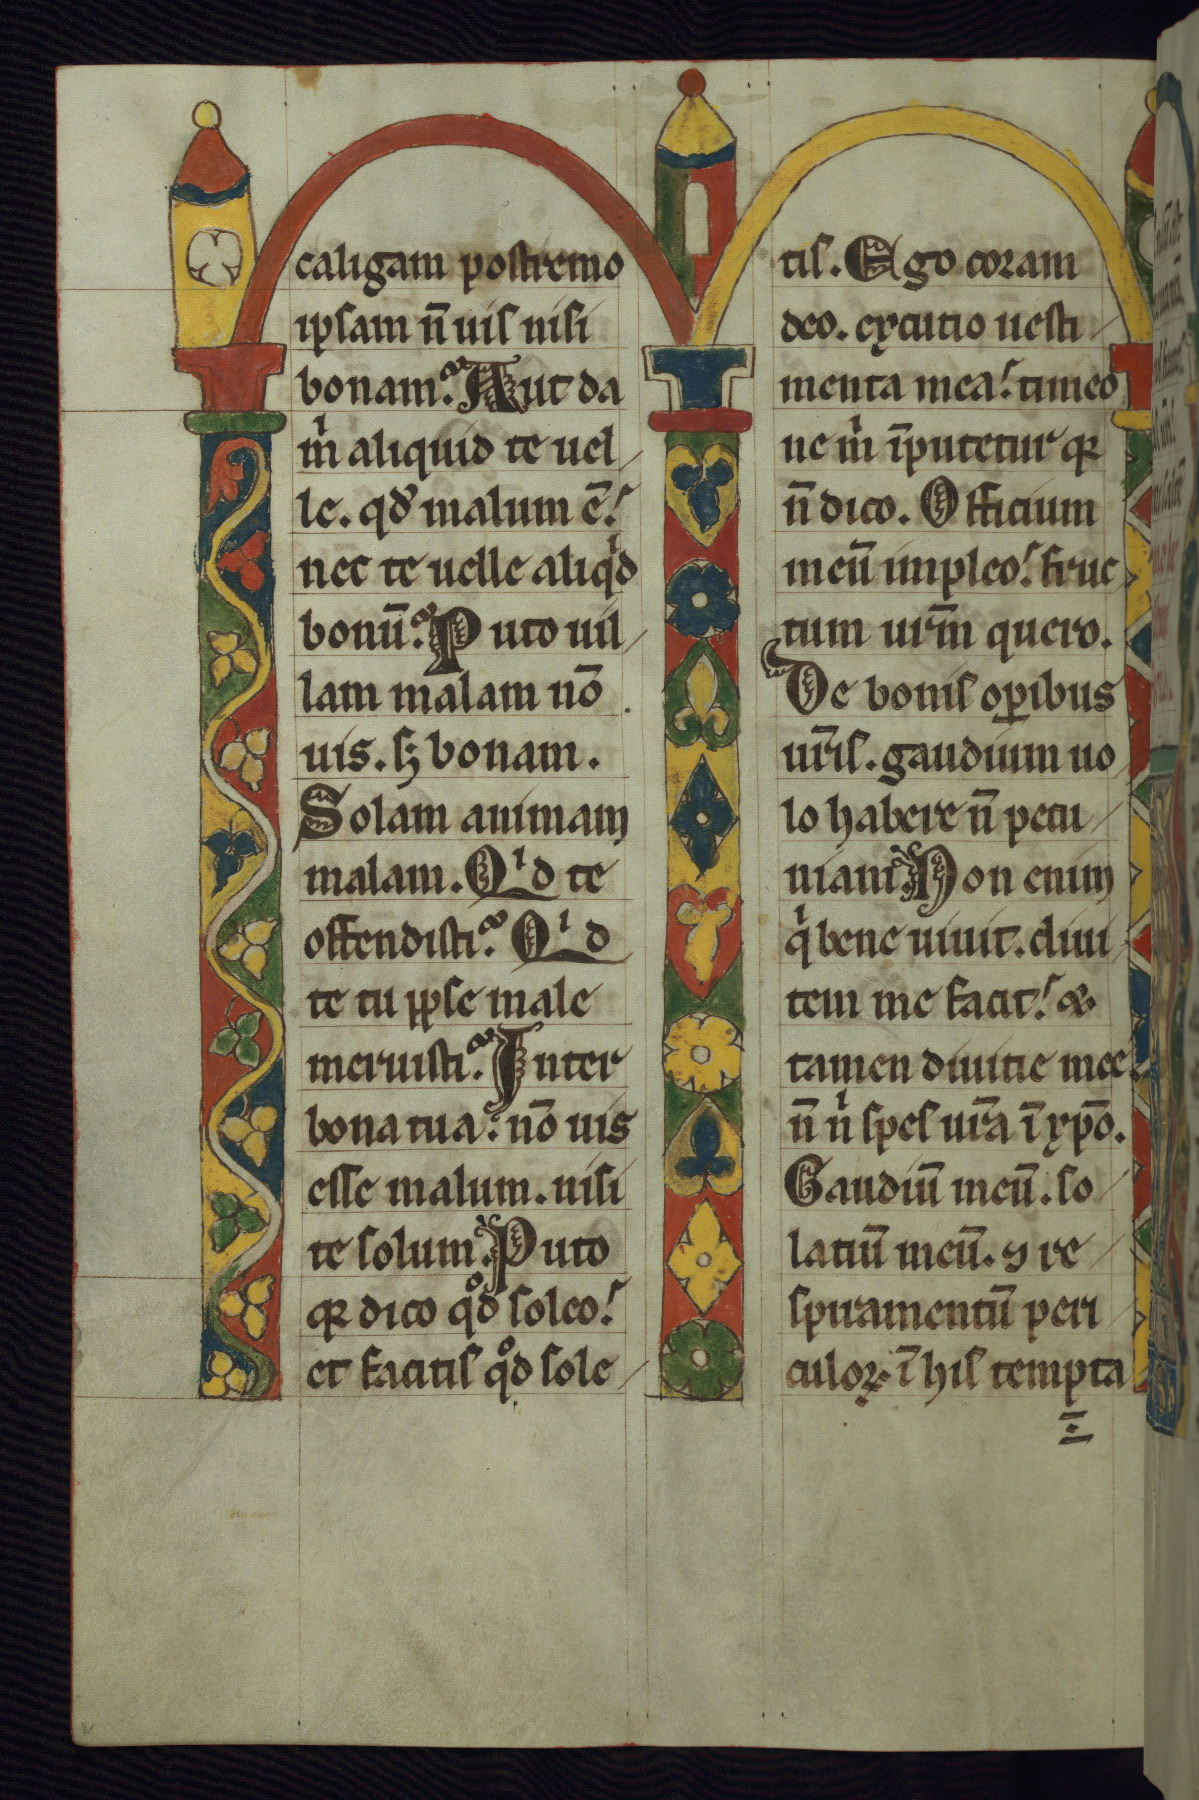 caligam postremo
ipsam n̄ uis nisi
bonam. Aut da
m̍ aliquid te uel
le. qd̓ malum ē.
nec te uelle aliqͥd
bonū. Puto uil
lam malam nō
uis. sꝫ bonam.
Solam animam
malam. Qͥd te
offendisti. Qͥd
te tu ipse male
meruisti. Inter
bona tua. nō uis
esse malum. nisi
te solum. Puto
qꝛ dico qͦd soleo.
et facitis qͦd sole
tis. Ego coram
deo. excutio uesti
menta mea. timeo
ne m̍ īputetur qꝛ
n̄ dico. Officium
meū impleo. fruc
tum ur̄m quero.
De bonis oꝑibus
ur̄is. gaudium uo
lo habere n̄ pecu
niam. Non enim
qͥ bene uiuit. diui
tem me facit. &
tamen diuitie mee
n̄ n̍ spes ur̄a ī xp̄o.
Gaudiū meū. so
latiū meū. ⁊ re
spiramentū peri
culoꝝ. ī his tempta